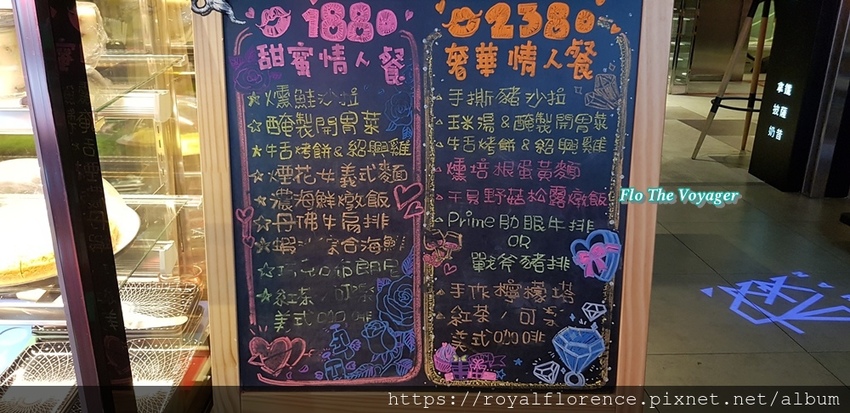 1880
甜蜜情人餐
燻鮭沙拉
醃製開胃菜
牛舌烤餅&紹興雞
煙花女義式麵
濃海鮮燉飯
丹佛牛肩排
蝦
布朗尼
紅茶/可樂
美式咖啡
2380
奢華情人餐
手撕豬沙拉
玉米湯&醃製開胃菜
牛舌烤餅&紹興雞
燻培根蛋黃麵
干貝野菇松露燉飯
Prime肋眼牛排
OR
戰斧豬排
手作檸檬塔
紅茶/可樂
美式咖啡
Flo The Voyager
https://royalflorence.pixnet.net/album